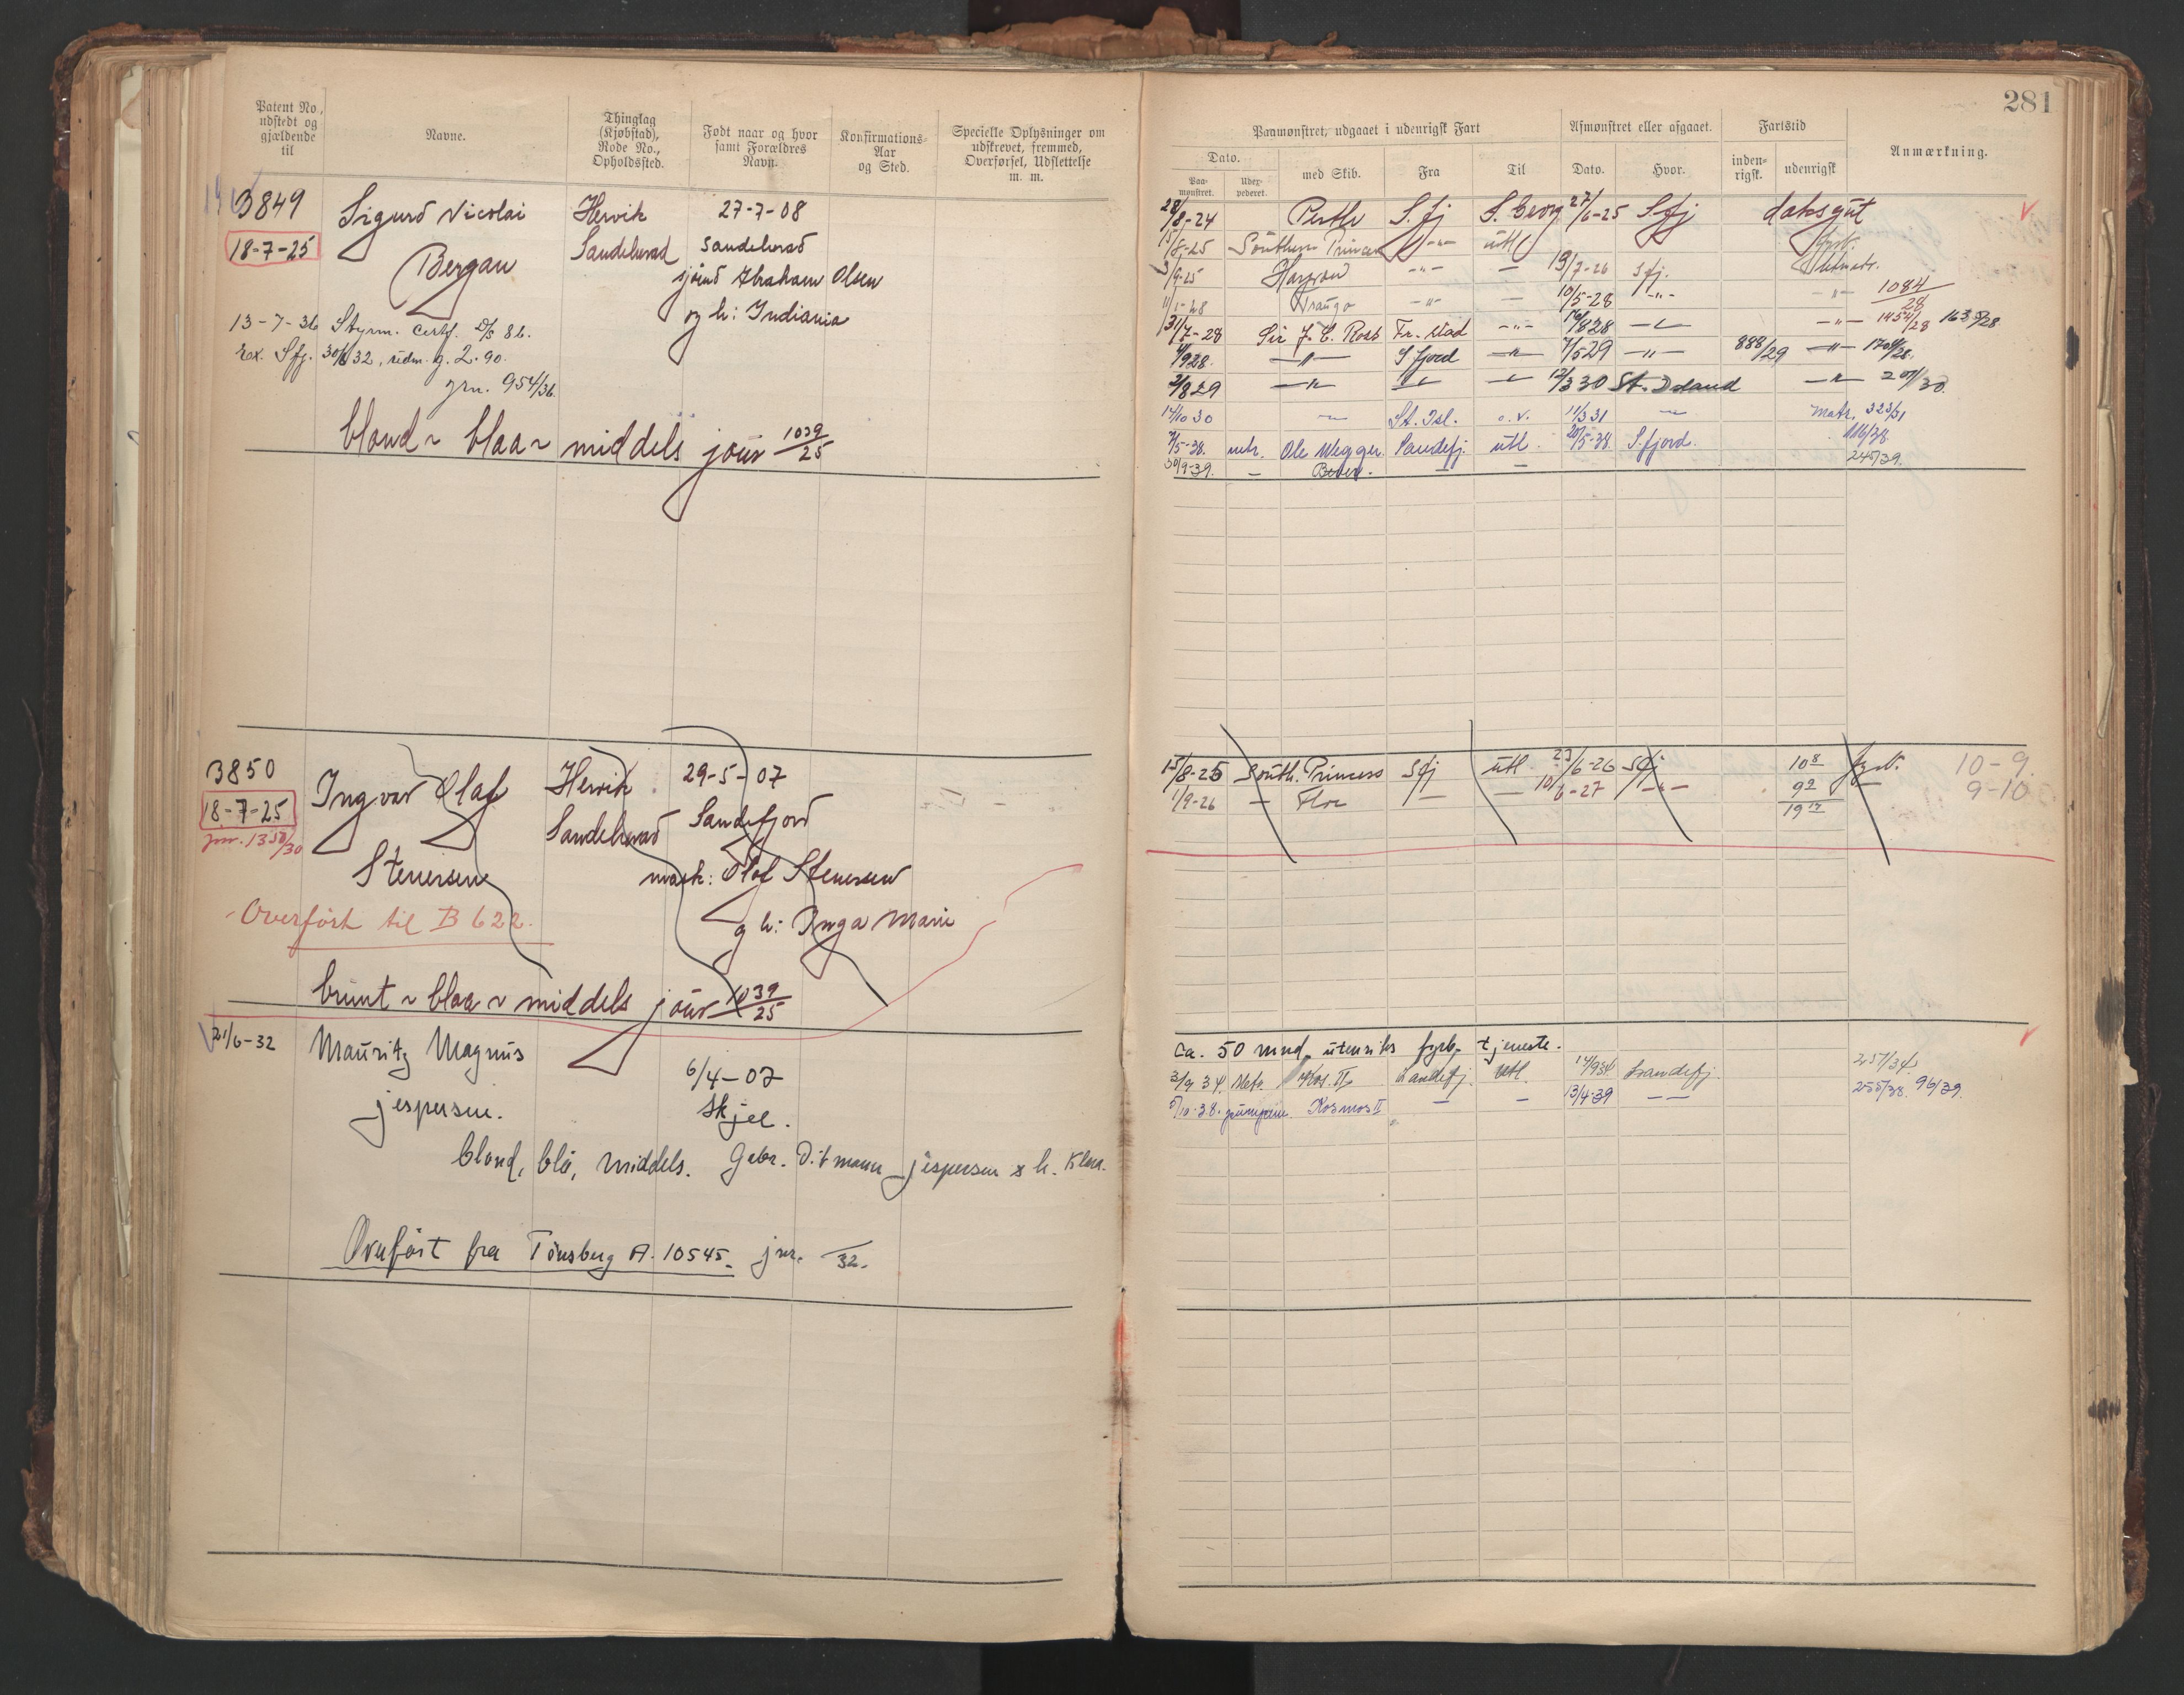 281
Patent No, udstedt og gjældende til
Navne.
Thinglag (Kjøbstad), Rode No., Opholdssted.
Født naar og hvor samt Forældres Navn.
Konfirmations-Aar og Sted.
Specielle Oplysninger om udskrevet, fremmed, Overførsel, Udslettelse m. m.
Paamønstret, udgaaet i udenrigsk Fart
Afmønstret eller afgaaet.
Fartstid
Anmærkning.
Dato.
Paa-mønstret.
med Skib.
Fra
Til
Dato.
Hvor.
inden-rigsk.
udenrigsk
3849 Sigurd Nicolai Hervik 27-7-08
18-7-25 Bergan Sandeherad Sandeherad
sjømd Abraham Olsen
og h: Indiania
13-7-36 Styrm. Certf. D/s 86.
Sfj. 30/6 32, g. 2.90.
jrn. 954/36.
blond ~ blaa ~ middels jour 1039/25
28/8-24 Perth S. fj S. Georg 27/6-25 S. fj daksgut
15/8-25 Southern Princess -"- utl fyrb.
3/9-25 -"- — 19/7-26 Sfj.
-"- — 10/5-28 -"- -"- 1084/28
31/7-28 Sir J. C. Ross Fr. stad -"- 16/8 28 -"- 1454/28 1635/28
4/9 28 -"- S fjord -"- 7/5 29 -"- 888/29 -"-
2/8 29 -"- 12/3 30 St. Island -"-
14/10 30 — St. Isl. o. v. 11/3 31 — Matr. 323/31
7/5-38. mtr. Ole Wegger. Sandefj. utl. 20/5-38. S. fjord. 116/38
30/9-39. — — — 245/39.
3850 Ingvar Olaf Hervik 29-5-07
18-7-25 Stenersen Sandeherad Sandefjord
mask: Olof Stenersen
g h: Inga Marie
Overført til B 622.
brunt ~ blaa ~ middels jour 1039/25
15/8-25 South. Princess Sfj utl 23/6-26 Sfj 10 8 fyrb. 10-9.
1/9-26 — — — 10/6-27 -"- 9 2 — 9-10
19 17
21/6-32 Mauritz Magnus 6/4-07
jespersen. Skjee.
blond, blå, middels. Gabr. Ditmann jespersen & h. Klara.
Overført fra Tönsberg A. 10545. jnr. /32.
Ca. 50 mnd. utenriks fyrb. tjeneste.
3/9 34. Matr. Kos. II Sandefj. Utl. 14/9 34. Sandefj. 257/34
5/10-38. pumpem. Kosmos II — — 13/4-39 — 255/38. 96/39.